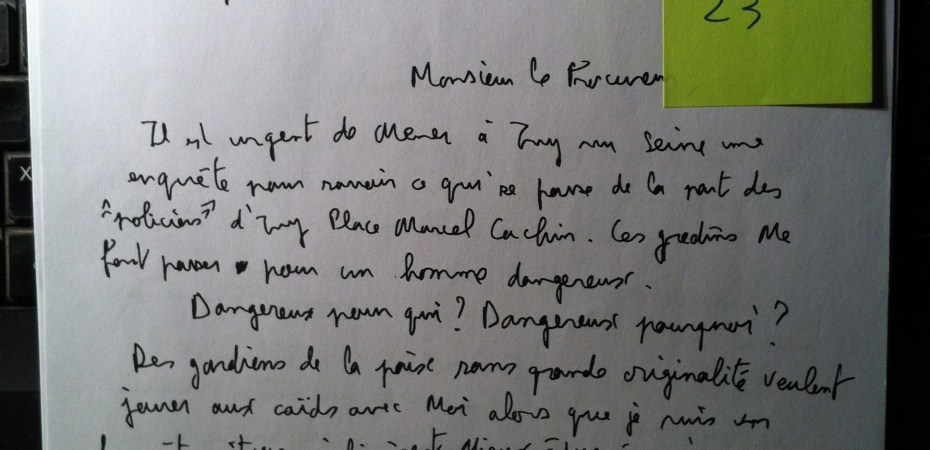 23
Monsieur le Procureur
Il est urgent de mener à Ivry sur Seine une
enquête pour savoir ce qui se passe de la part des
"policiers" d'Ivry Place Marcel Cachin. Ces gredins me
font passer pour un homme dangereux.
Dangereux pour qui ? Dangereux pourquoi ?
Des gardiens de la paix sans grande originalité veulent
jouer aux caïds avec moi alors que je suis un